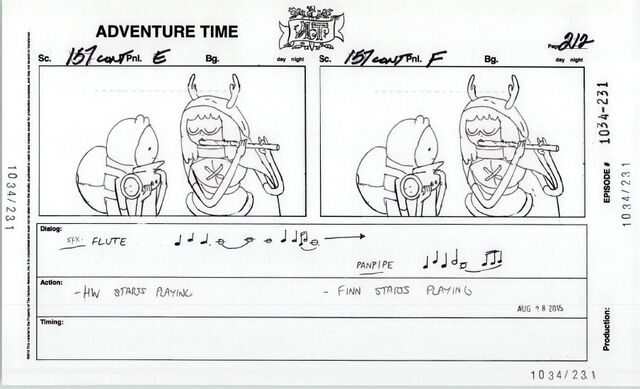 ADVENTURE TIME
Sc. 157 CONT Pnl. E Bg. day night
Sc. 157 CONT Pnl. F Bg. day night Page 212
EPISODE # 1034-231
1034/231
1034/231
Dialog:
SFX: FLUTE
PANPIPE
Action:
- HW STARTS PLAYING
- FINN STARTS PLAYING
AUG 18 2015
Timing:
Production:
1034/231